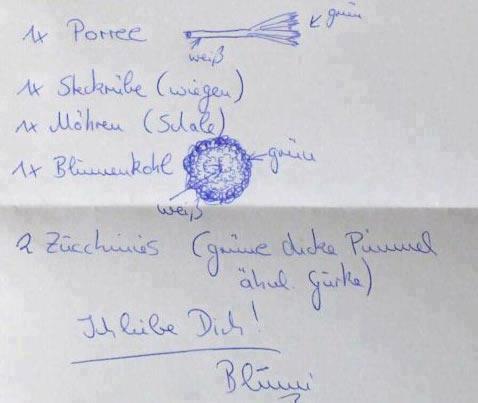 1x Porree
grün
weiß
1x Steckrübe (wiegen)
1x Möhren (Schale)
1x Blumenkohl
grün
weiß
2 Zucchinis (grüne dicke Pimmel
ähnl. Gurke)
Ich liebe Dich!
Blümi